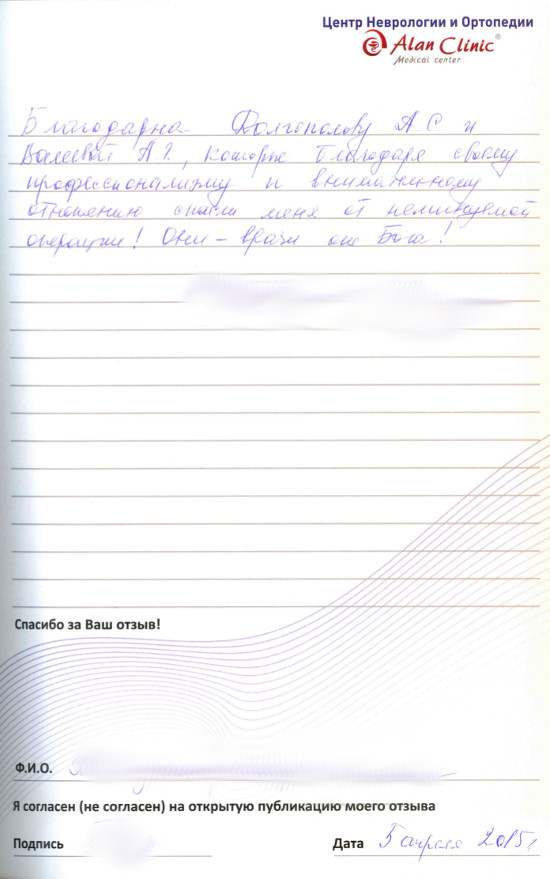 Центр Неврологии и Ортопедии
Alan Clinic®
Medical center
Благодарна Долгополову А.С и
Валеевой А.Г., которые благодаря своему
профессионализму и внимательному
отношению спасли меня от неминуемой
операции! Они - врачи от Бога!
Спасибо за Ваш отзыв!
Ф.И.О.
Я согласен (не согласен) на открытую публикацию моего отзыва
Подпись
Дата 5 апреля 2015г